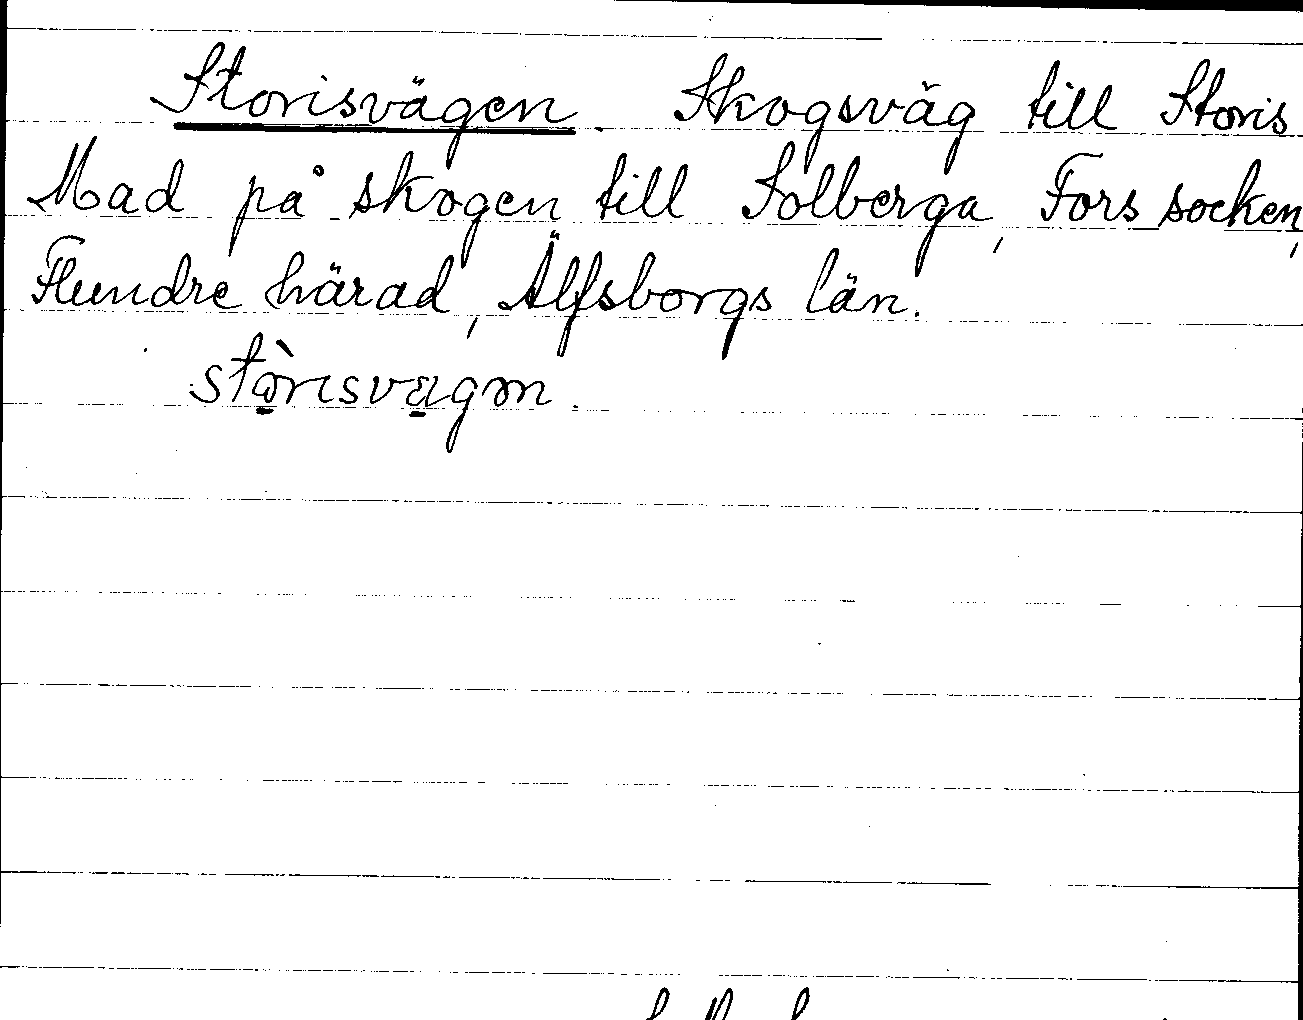 Storisvägen. Skogsväg till Storis
Mad på skogen till Solberga, Fors socken,
Flundre härad, Älfsborgs län.